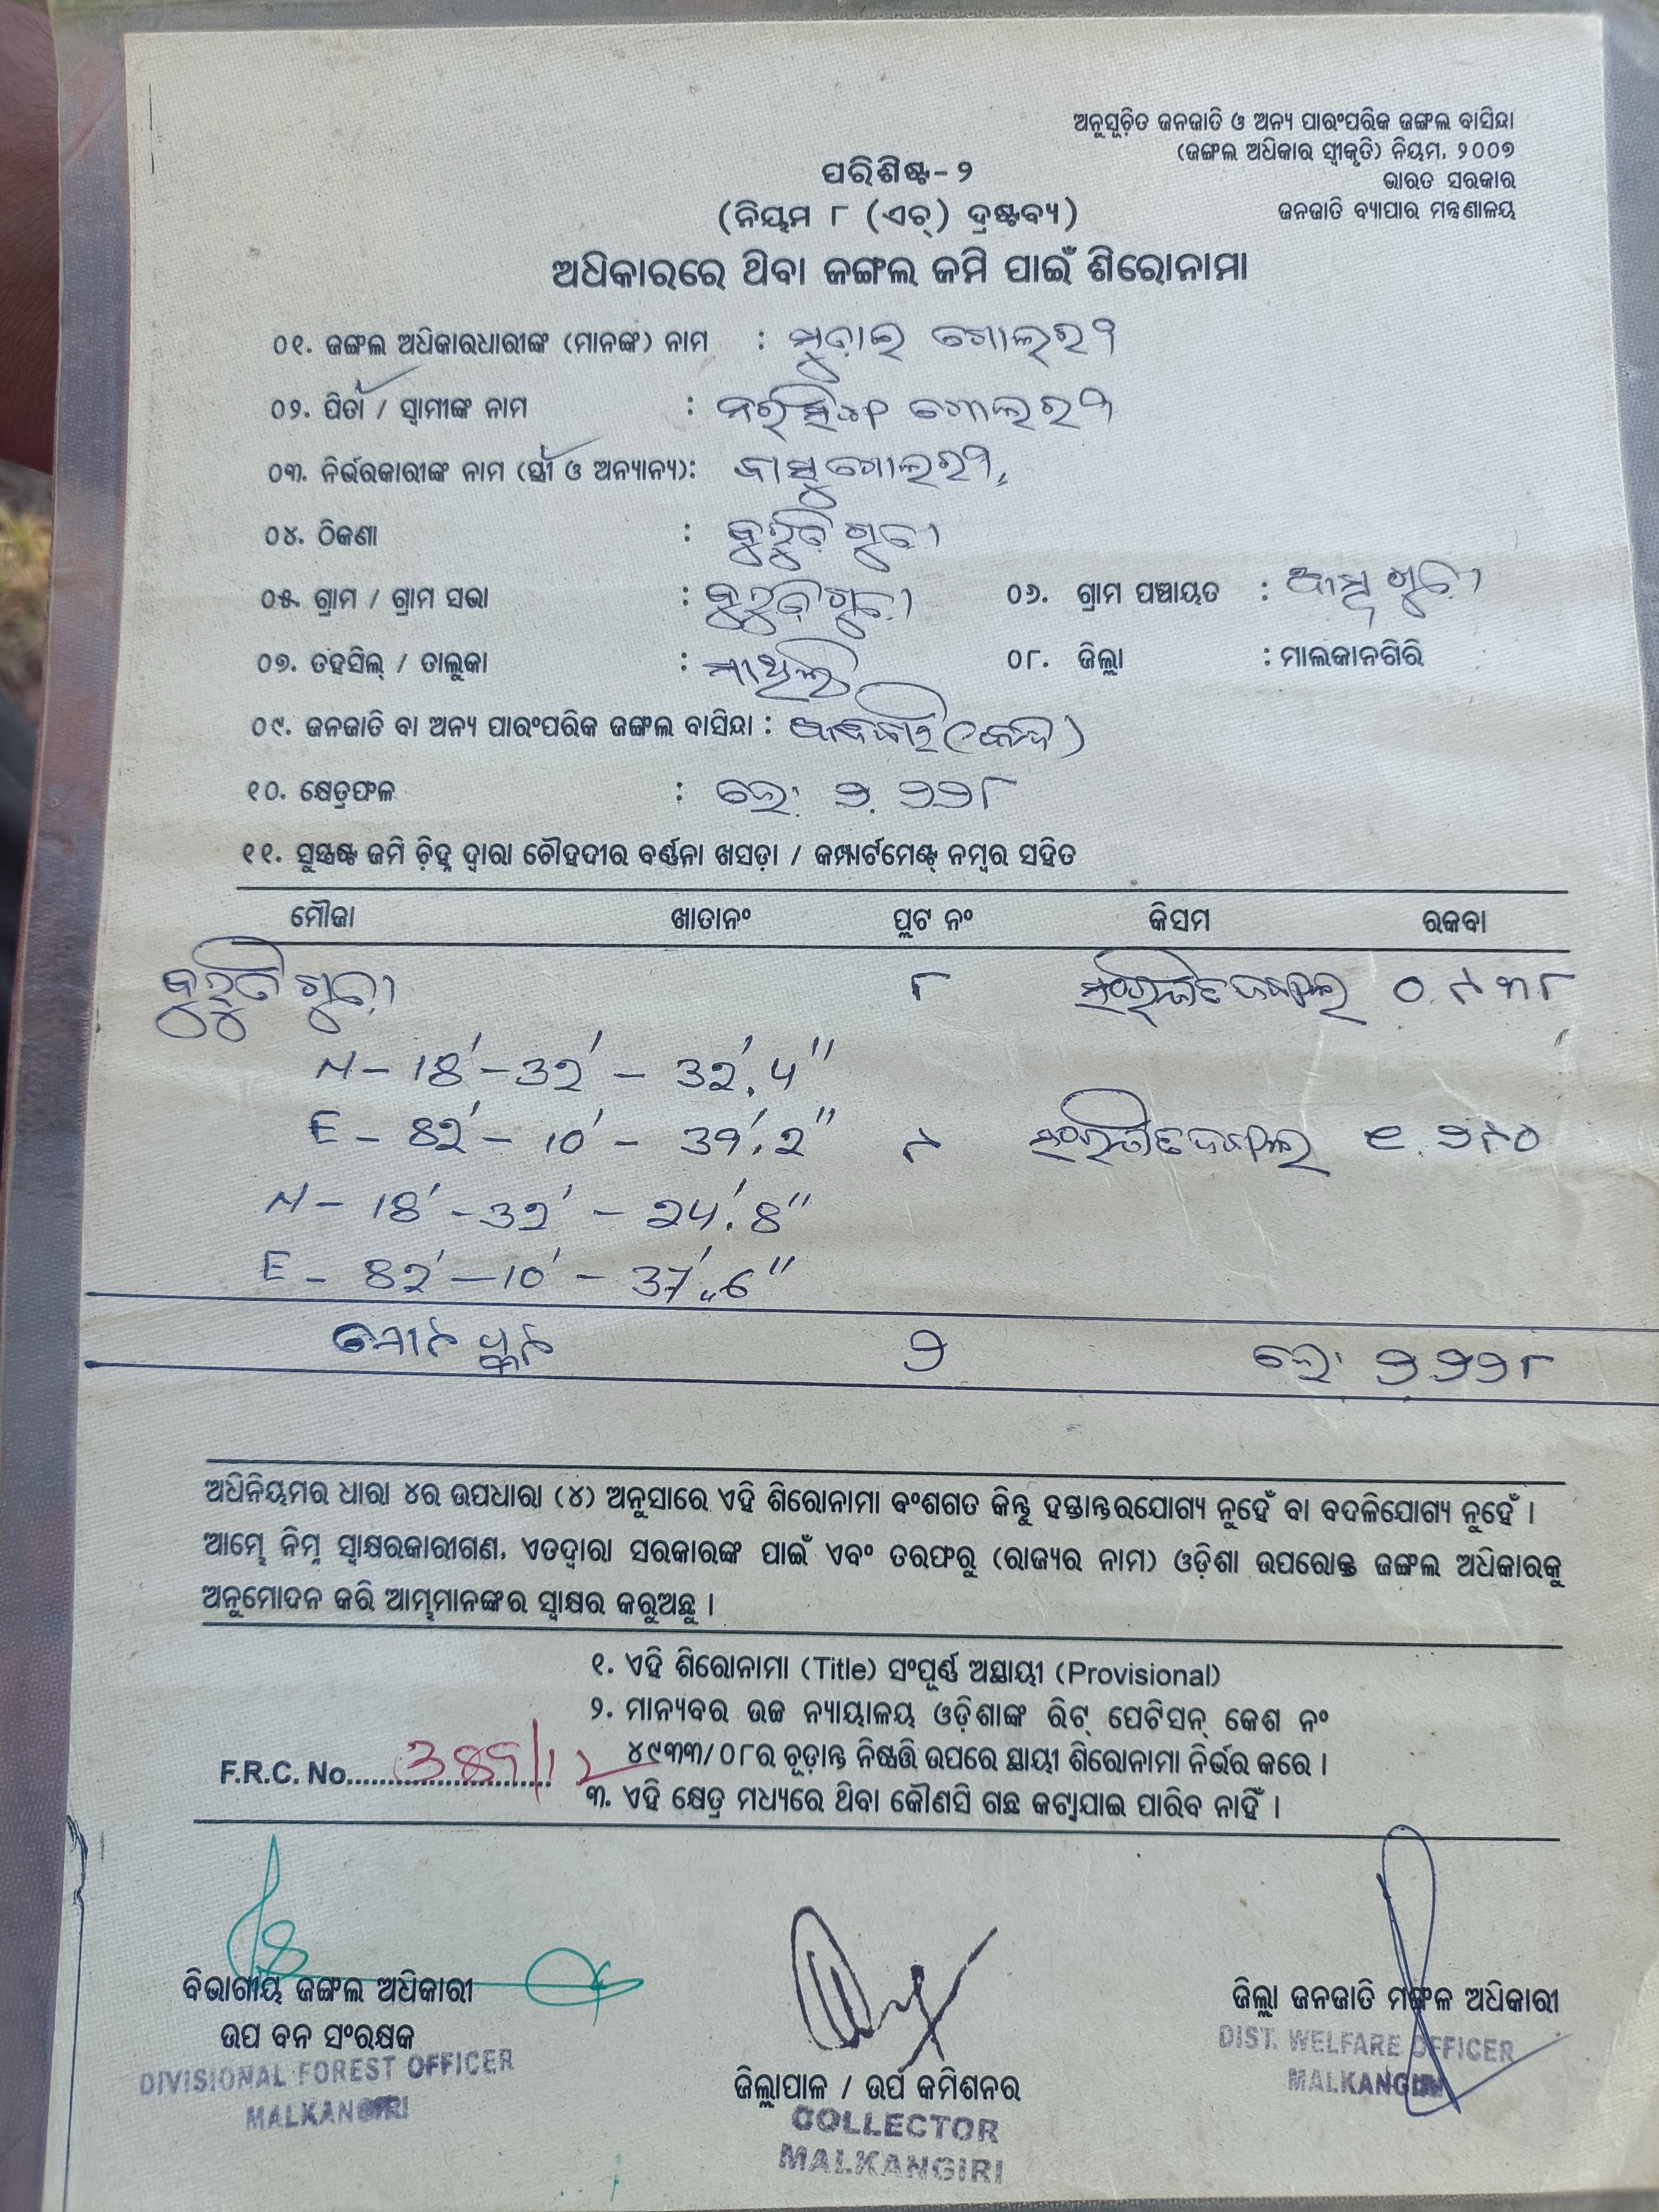 ଅନୁସୂଚିତ ଜନଜାତି ଓ ଅନ୍ୟ ପାରଂପରିକ ଜଙ୍ଗଲ ବାସିନ୍ଦା
(ଜଙ୍ଗଲ ଅଧିକାର ସ୍ୱୀକୃତି) ନିୟମ, ୨୦୦୭
ଭାରତ ସରକାର
ଜନଜାତି ବ୍ୟାପାର ମନ୍ତ୍ରଣାଳୟ
ପରିଶିଷ୍ଟ-୨
(ନିୟମ ୮ (ଏଚ୍) ଦ୍ରଷ୍ଟବ୍ୟ)
ଅଧିକାରରେ ଥିବା ଜଙ୍ଗଲ ଜମି ପାଇଁ ଶିରୋନାମା
୦୧. ଜଙ୍ଗଲ ଅଧିକାରଧାରୀଙ୍କ (ମାନଙ୍କ) ନାମ :
୦୨. ପିତା / ସ୍ୱାମୀଙ୍କ ନାମ :
୦୩. ନିର୍ଭରକାରୀଙ୍କ ନାମ (ସ୍ତ୍ରୀ ଓ ଅନ୍ୟାନ୍ୟ):
୦୪. ଠିକଣା :
୦୫. ଗ୍ରାମ / ଗ୍ରାମ ସଭା : ୦୬. ଗ୍ରାମ ପଞ୍ଚାୟତ :
୦୭. ତହସିଲ୍ / ତାଲୁକା : ମାଥିଲି ୦୮. ଜିଲ୍ଲା : ମାଲକାନଗିରି
୦୯. ଜନଜାତି ବା ଅନ୍ୟ ପାରଂପରିକ ଜଙ୍ଗଲ ବାସିନ୍ଦା :
୧୦. କ୍ଷେତ୍ରଫଳ : ହେ: ୨.୨୨୮
୧୧. ସୁସ୍ପଷ୍ଟ ଜମି ଚିହ୍ନ ଦ୍ୱାରା ଚୌହଦୀର ବର୍ଣ୍ଣନା ଖସଡ଼ା / କମ୍ପାର୍ଟମେଣ୍ଟ୍ ନମ୍ବର ସହିତ
ମୌଜା ଖାତାନଂ ପ୍ଲଟ ନଂ କିସମ ରକବା
୮ ୦.୯୩୮
N - 18' - 32' - 32'.4"
E - 82' - 10' - 39'.2" ୯ ୧.୨୯୦
N - 18' - 32' - 24'.8"
E - 82' - 10' - 37'.6"
ମୋଟ ପ୍ଲଟ ୨ ହେ: ୨.୨୨୮
ଅଧିନିୟମର ଧାରା ୪ର ଉପଧାରା (୪) ଅନୁସାରେ ଏହି ଶିରୋନାମା ବଂଶଗତ କିନ୍ତୁ ହସ୍ତାନ୍ତରଯୋଗ୍ୟ ନୁହେଁ ବା ବଦଳିଯୋଗ୍ୟ ନୁହେଁ ।
ଆମ୍ଭେ ନିମ୍ନ ସ୍ୱାକ୍ଷରକାରୀଗଣ, ଏତଦ୍ୱାରା ସରକାରଙ୍କ ପାଇଁ ଏବଂ ତରଫରୁ (ରାଜ୍ୟର ନାମ) ଓଡ଼ିଶା ଉପରୋକ୍ତ ଜଙ୍ଗଲ ଅଧିକାରକୁ
ଅନୁମୋଦନ କରି ଆମ୍ଭମାନଙ୍କର ସ୍ୱାକ୍ଷର କରୁଅଛୁ ।
୧. ଏହି ଶିରୋନାମା (Title) ସଂପୂର୍ଣ୍ଣ ଅସ୍ଥାୟୀ (Provisional)
୨. ମାନ୍ୟବର ଉଚ୍ଚ ନ୍ୟାୟାଳୟ ଓଡ଼ିଶାଙ୍କ ରିଟ୍ ପେଟିସନ୍ କେଶ ନଂ
୪୯୩୩/୦୮ର ଚୂଡ଼ାନ୍ତ ନିଷ୍ପତ୍ତି ଉପରେ ସ୍ଥାୟୀ ଶିରୋନାମା ନିର୍ଭର କରେ ।
F.R.C. No.
୩. ଏହି କ୍ଷେତ୍ର ମଧ୍ୟରେ ଥିବା କୌଣସି ଗଛ କଟାଯାଇ ପାରିବ ନାହିଁ ।
ବିଭାଗୀୟ ଜଙ୍ଗଲ ଅଧିକାରୀ
ଉପ ବନ ସଂରକ୍ଷକ
DIVISIONAL FOREST OFFICER
MALKANGIRI
ଜିଲ୍ଲାପାଳ / ଉପ କମିଶନର
COLLECTOR
MALKANGIRI
ଜିଲ୍ଲା ଜନଜାତି ମଙ୍ଗଳ ଅଧିକାରୀ
DIST. WELFARE OFFICER
MALKANGIRI